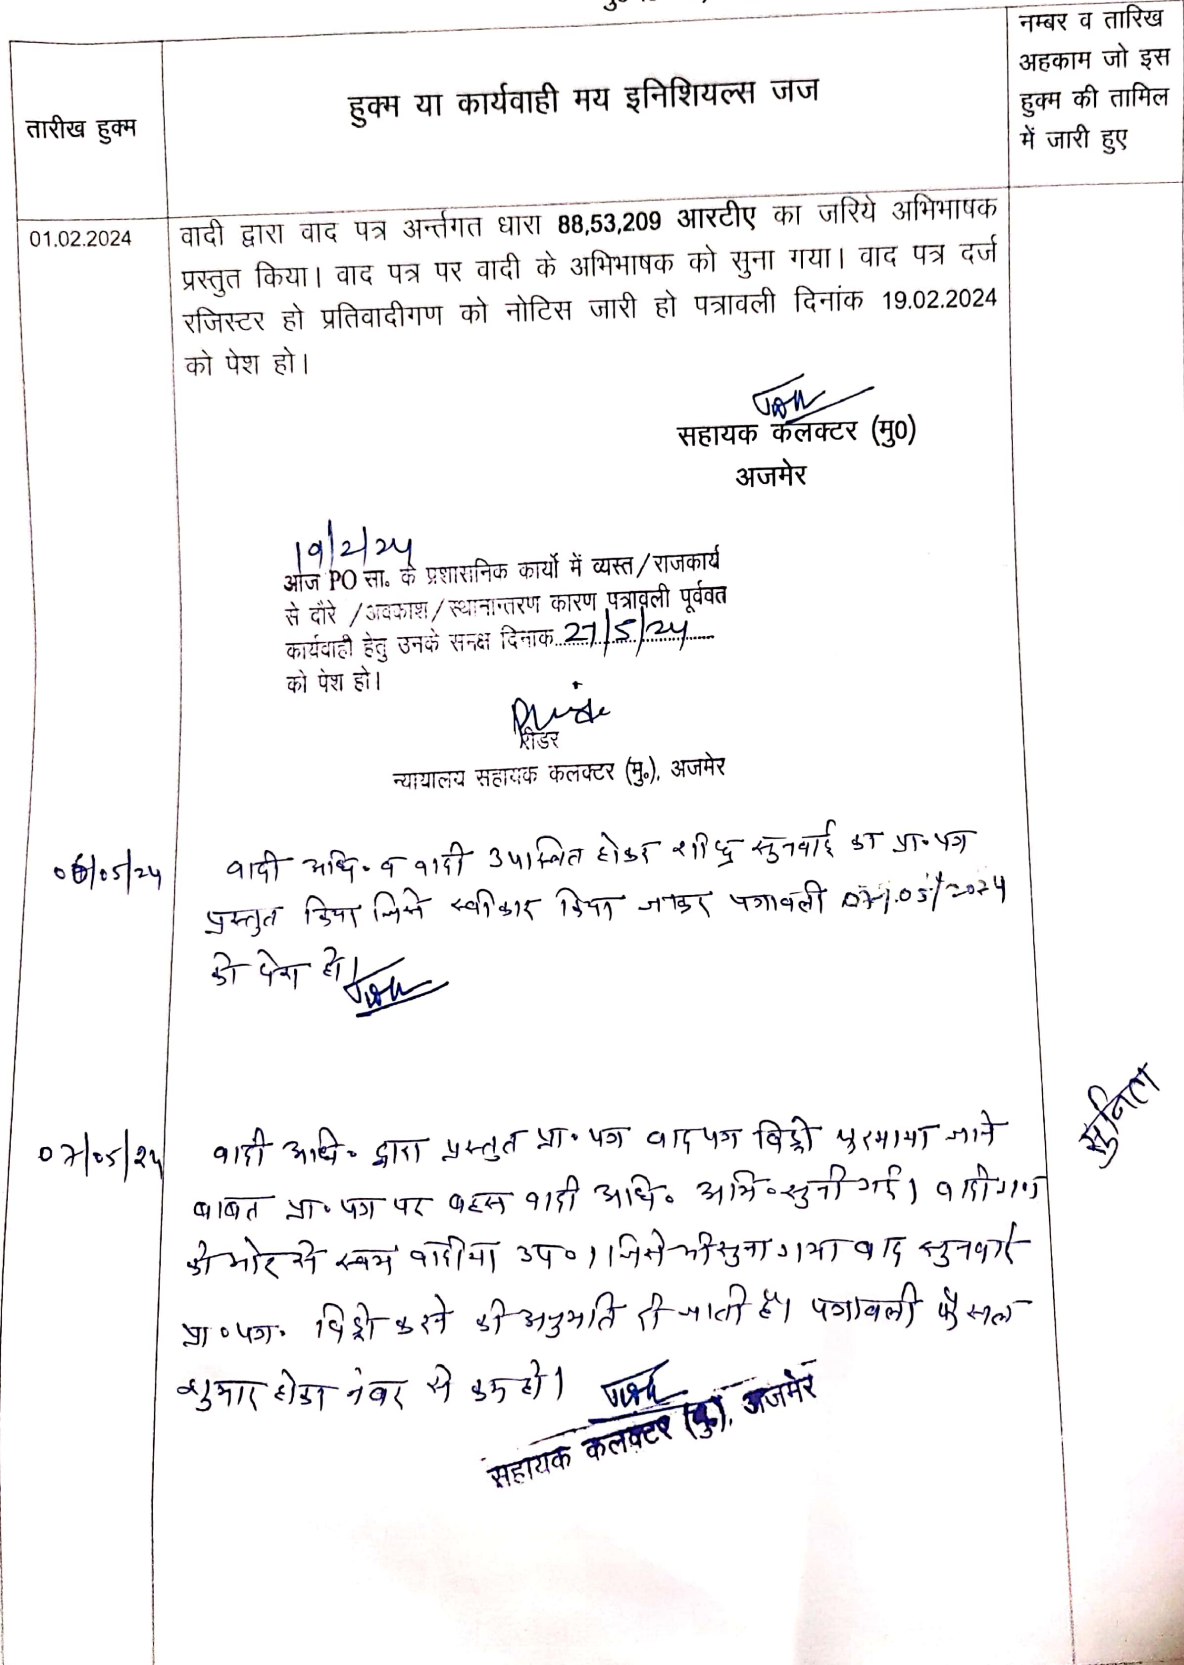 तारीख हुक्म
हुक्म या कार्यवाही मय इनिशियल्स जज
नम्बर व तारिख
अहकाम जो इस
हुक्म की तामिल
में जारी हुए
01.02.2024
वादी द्वारा वाद पत्र अर्न्तगत धारा 88,53,209 आरटीए का जरिये अभिभाषक
प्रस्तुत किया। वाद पत्र पर वादी के अभिभाषक को सुना गया। वाद पत्र दर्ज
रजिस्टर हो प्रतिवादीगण को नोटिस जारी हो पत्रावली दिनांक 19.02.2024
को पेश हो।
सहायक कलक्टर (मु0)
अजमेर
19/2/24
आज PO सा. के प्रशासनिक कार्यो में व्यस्त/राजकार्य
से दौरे /अवकाश/स्थानान्तरण कारण पत्रावली पूर्ववत
कार्यवाही हेतु उनके समक्ष दिनाक..27/5/24......
को पेश हो।
रीडर
न्यायालय सहायक कलक्टर (मु.), अजमेर
06/05/24
वादी अधि. व वादी उपस्थित होकर शीघ्र सुनवाई का प्रा. पत्र
प्रस्तुत किया जिसे स्वीकार किया जाकर पत्रावली 07/.05/2024
को पेश हो।
07/05/24
वादी अधि. द्वारा प्रस्तुत प्रा. पत्र वाद पत्र विड्रो फरमाया जाने
बाबत प्रा. पत्र पर बहस वादी अधि. सुनी गई। वादीगण
की ओर से स्वयं वादीया उप०। जिसे भी सुना गया वाद
प्रा. पत्र. विड्रो करने की अनुमति दी जाती है। पत्रावली फैसल
शुमार होकर नंबर से कम हो।
सहायक कलक्टर (मु.), अजमेर
सुनिल